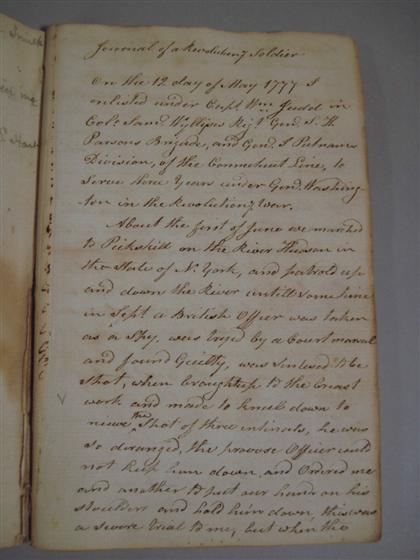 Journal of a Revolutiony Soldier
On the 12 day of May 1777 I
enlisted under Capt Wm Judd in
Colo Saml Wyllyses Rejt Genl S. H.
Parsons Brigade, and Genl I Putnams
Division, of the Connecticut Line, to
Serve three Years under Genl Washing-
ton in the Revolutiony War.
About the first of June we marched
to Pickskill on the River Hudson in
the State of N. York, and patrold up
and down the River untill Sometime
in Sept a British Officer was taken
as a Spy, was tryed by a Court marsial
and found Guilty, was Sentesed to be
Shot, when brought up to the breast
work and made to kneel down to
the
Shot of three
so deranged, the provose Officer could
not keep him down, and Ordered me
and another to put our hands on his
shoulders and hold him down, this was
a severe trial to me, but when the